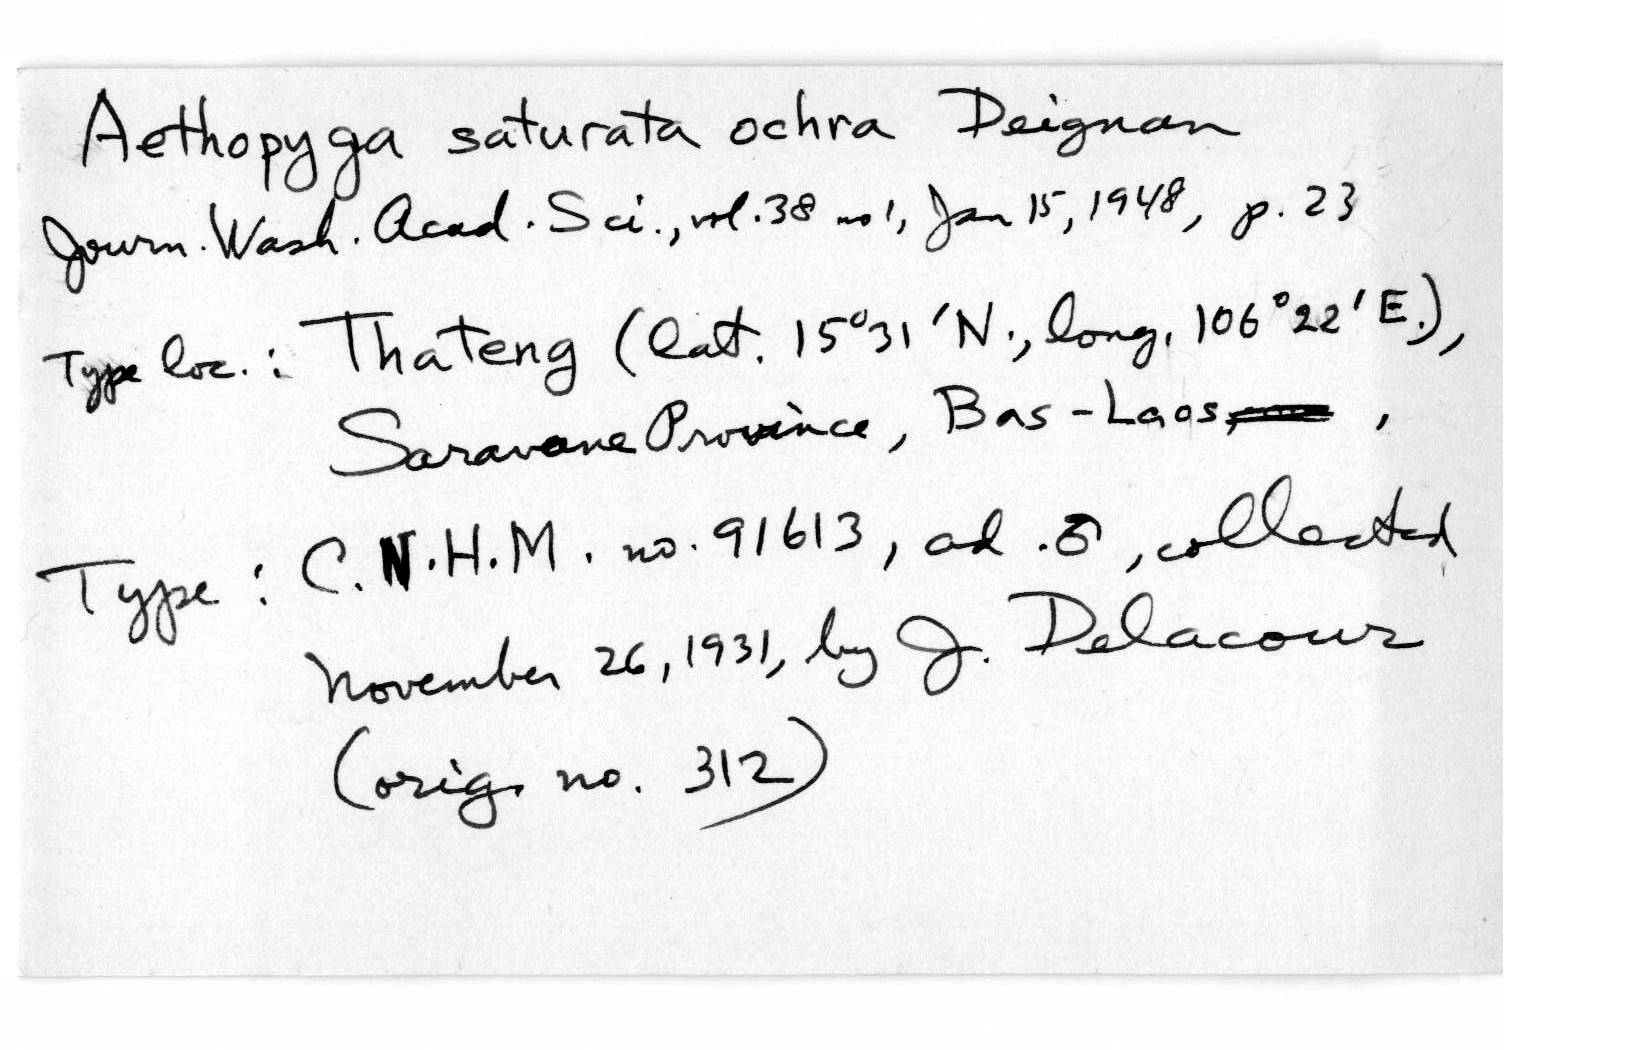 Aethopyga saturata ochra Deignan
Journ. Wash. Acad. Sci., vol. 38 no 1, Jan 15, 1948, p. 23
Type loc. : Thateng (lat. 15°31'N., long. 106°22'E.),
Saravane Province, Bas-Laos,
Type : C.N.H.M. no. 91613, ad. ♂, collected
November 26, 1931, by J. Delacour
(orig. no. 312)